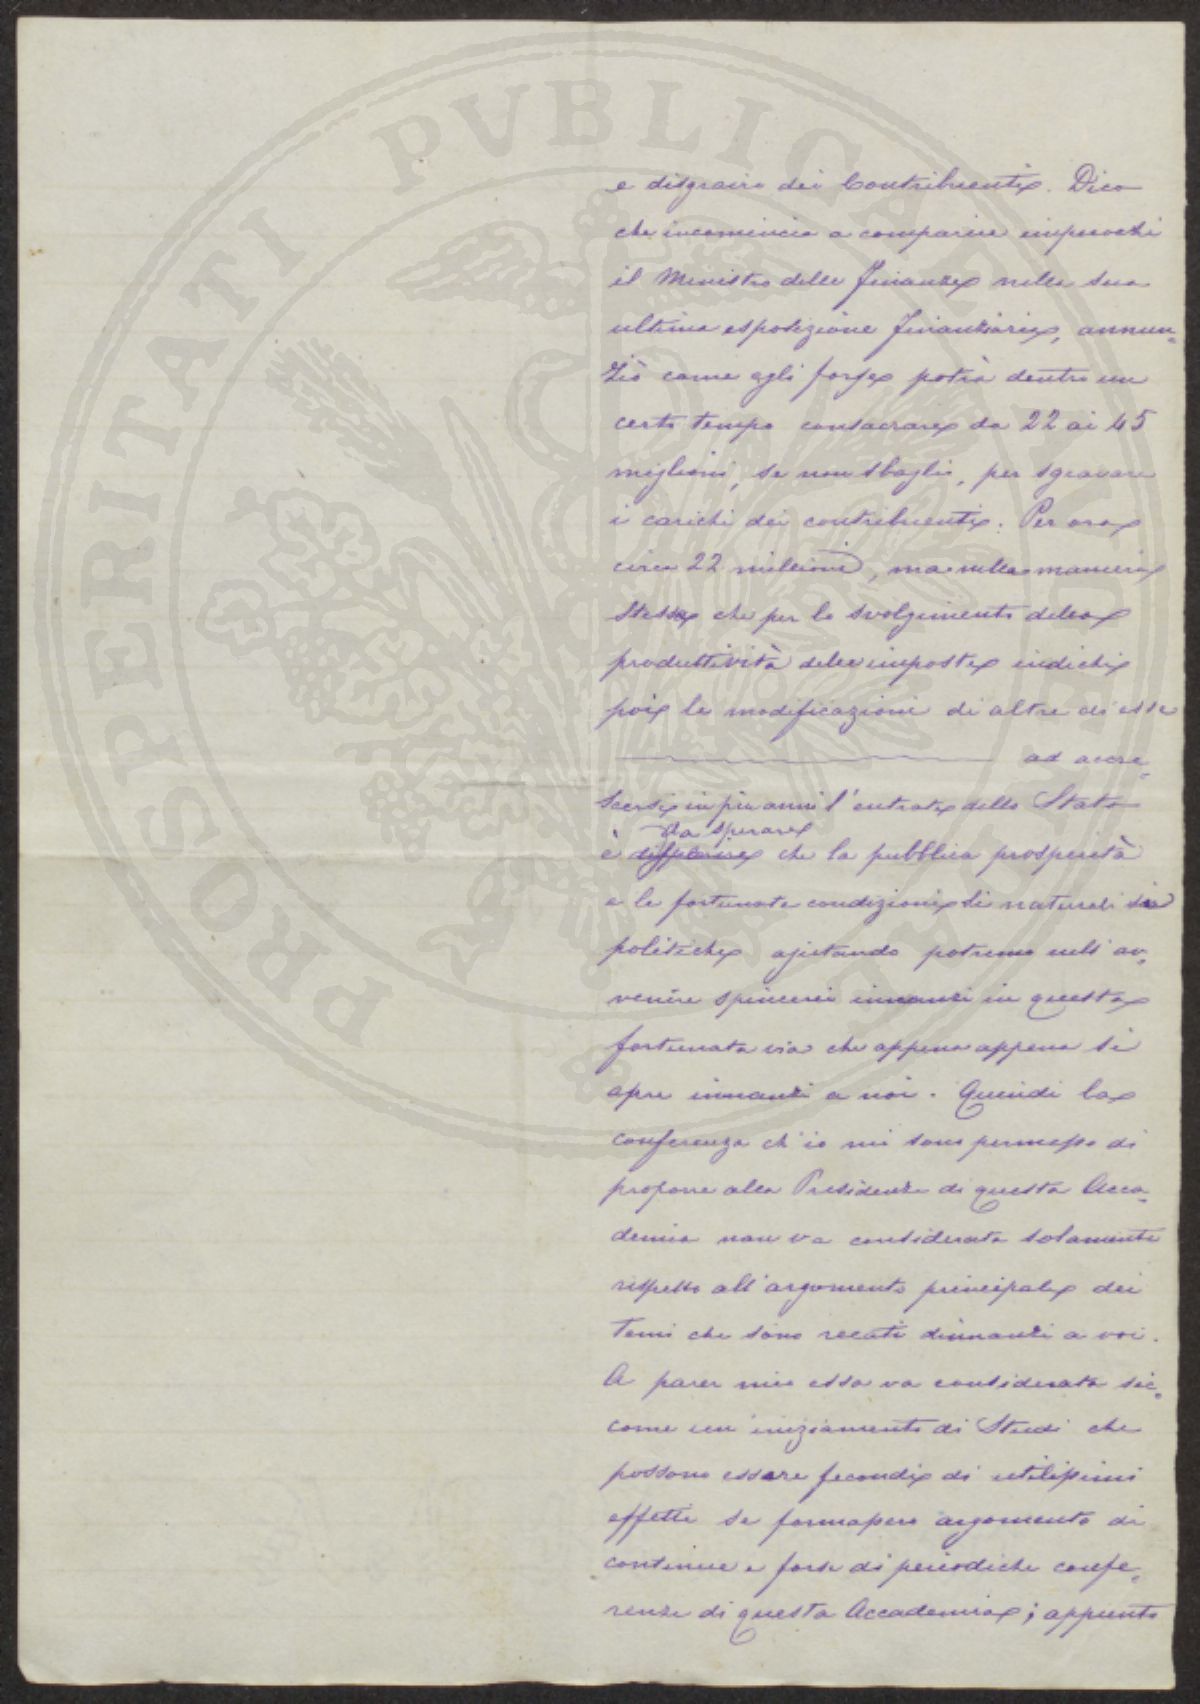 PROSPERITATI PUBLICAE AUGENDAE
e disgravio dei Contribuenti. Dico
che incomincia a comparire imperochè
il Ministro delle Finanze nella sua
ultima esposizione finanziaria, annun-
ziò come egli forse potrà dentro un
certo tempo consacrare da 22 ai 45
miglioni, se non sbaglio, per sgravare
i carichi dei contribuenti. Per ora
circa 22 millioni, ma nella maniera
stessa che per lo svolgimento della
produttività delle imposte indichi
poi la modificazione di altre di esse
ad accre-
scersi in più anni l'entrate dello Stato
da sperare
è che la pubblica prosperità
e le fortunate condizioni si naturali sia
politiche ajutando potremo nell'av-
venire spincerci innanzi in questa
fortunata via che appena appena si
apre innanzi a noi. Quindi la
conferenza ch'io mi sono permesso di
proporre alla Presidenza di questa Acca-
demia non va considerata solamente
rispetto all'argomento principale dei
temi che sono recati dinnanzi a voi.
A parer mio essa va considerata sic-
come un'iniziamento di Studi che
possono essere fecondi di utilissimi
effetti se formassero argomento di
continue e forse di periodiche confe-
renze di questa Accademia; appunto